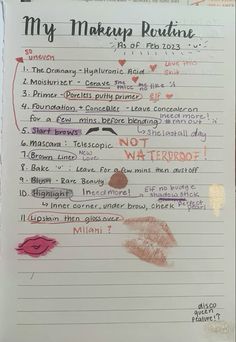 My Makeup Routine
As of Feb 2023 'u'
so uneven
Love this shit
1. The Ordinary - Hyaluronic Acid
2. Moisturizer - Cerave she nice no like 's
3. Primer - Poreless putty primer elf
4. Foundation + Concealer - Leave concealer on
for a few mins before blending
I need more!
5. Start brows
↳ She last all day
6. Mascara: Telescopic NOT WATERPROOF!
7. Brown Liner New Love
8. Bake 'u' : Leave for a few mins then dust off
9. Blush - Rare Beauty
10. Highlight I need more! Elf no budge shadow stick
↳ Inner corner, under brow, cheek Perfect pearl
11. Lip stain then gloss over
Milani?
disco queen